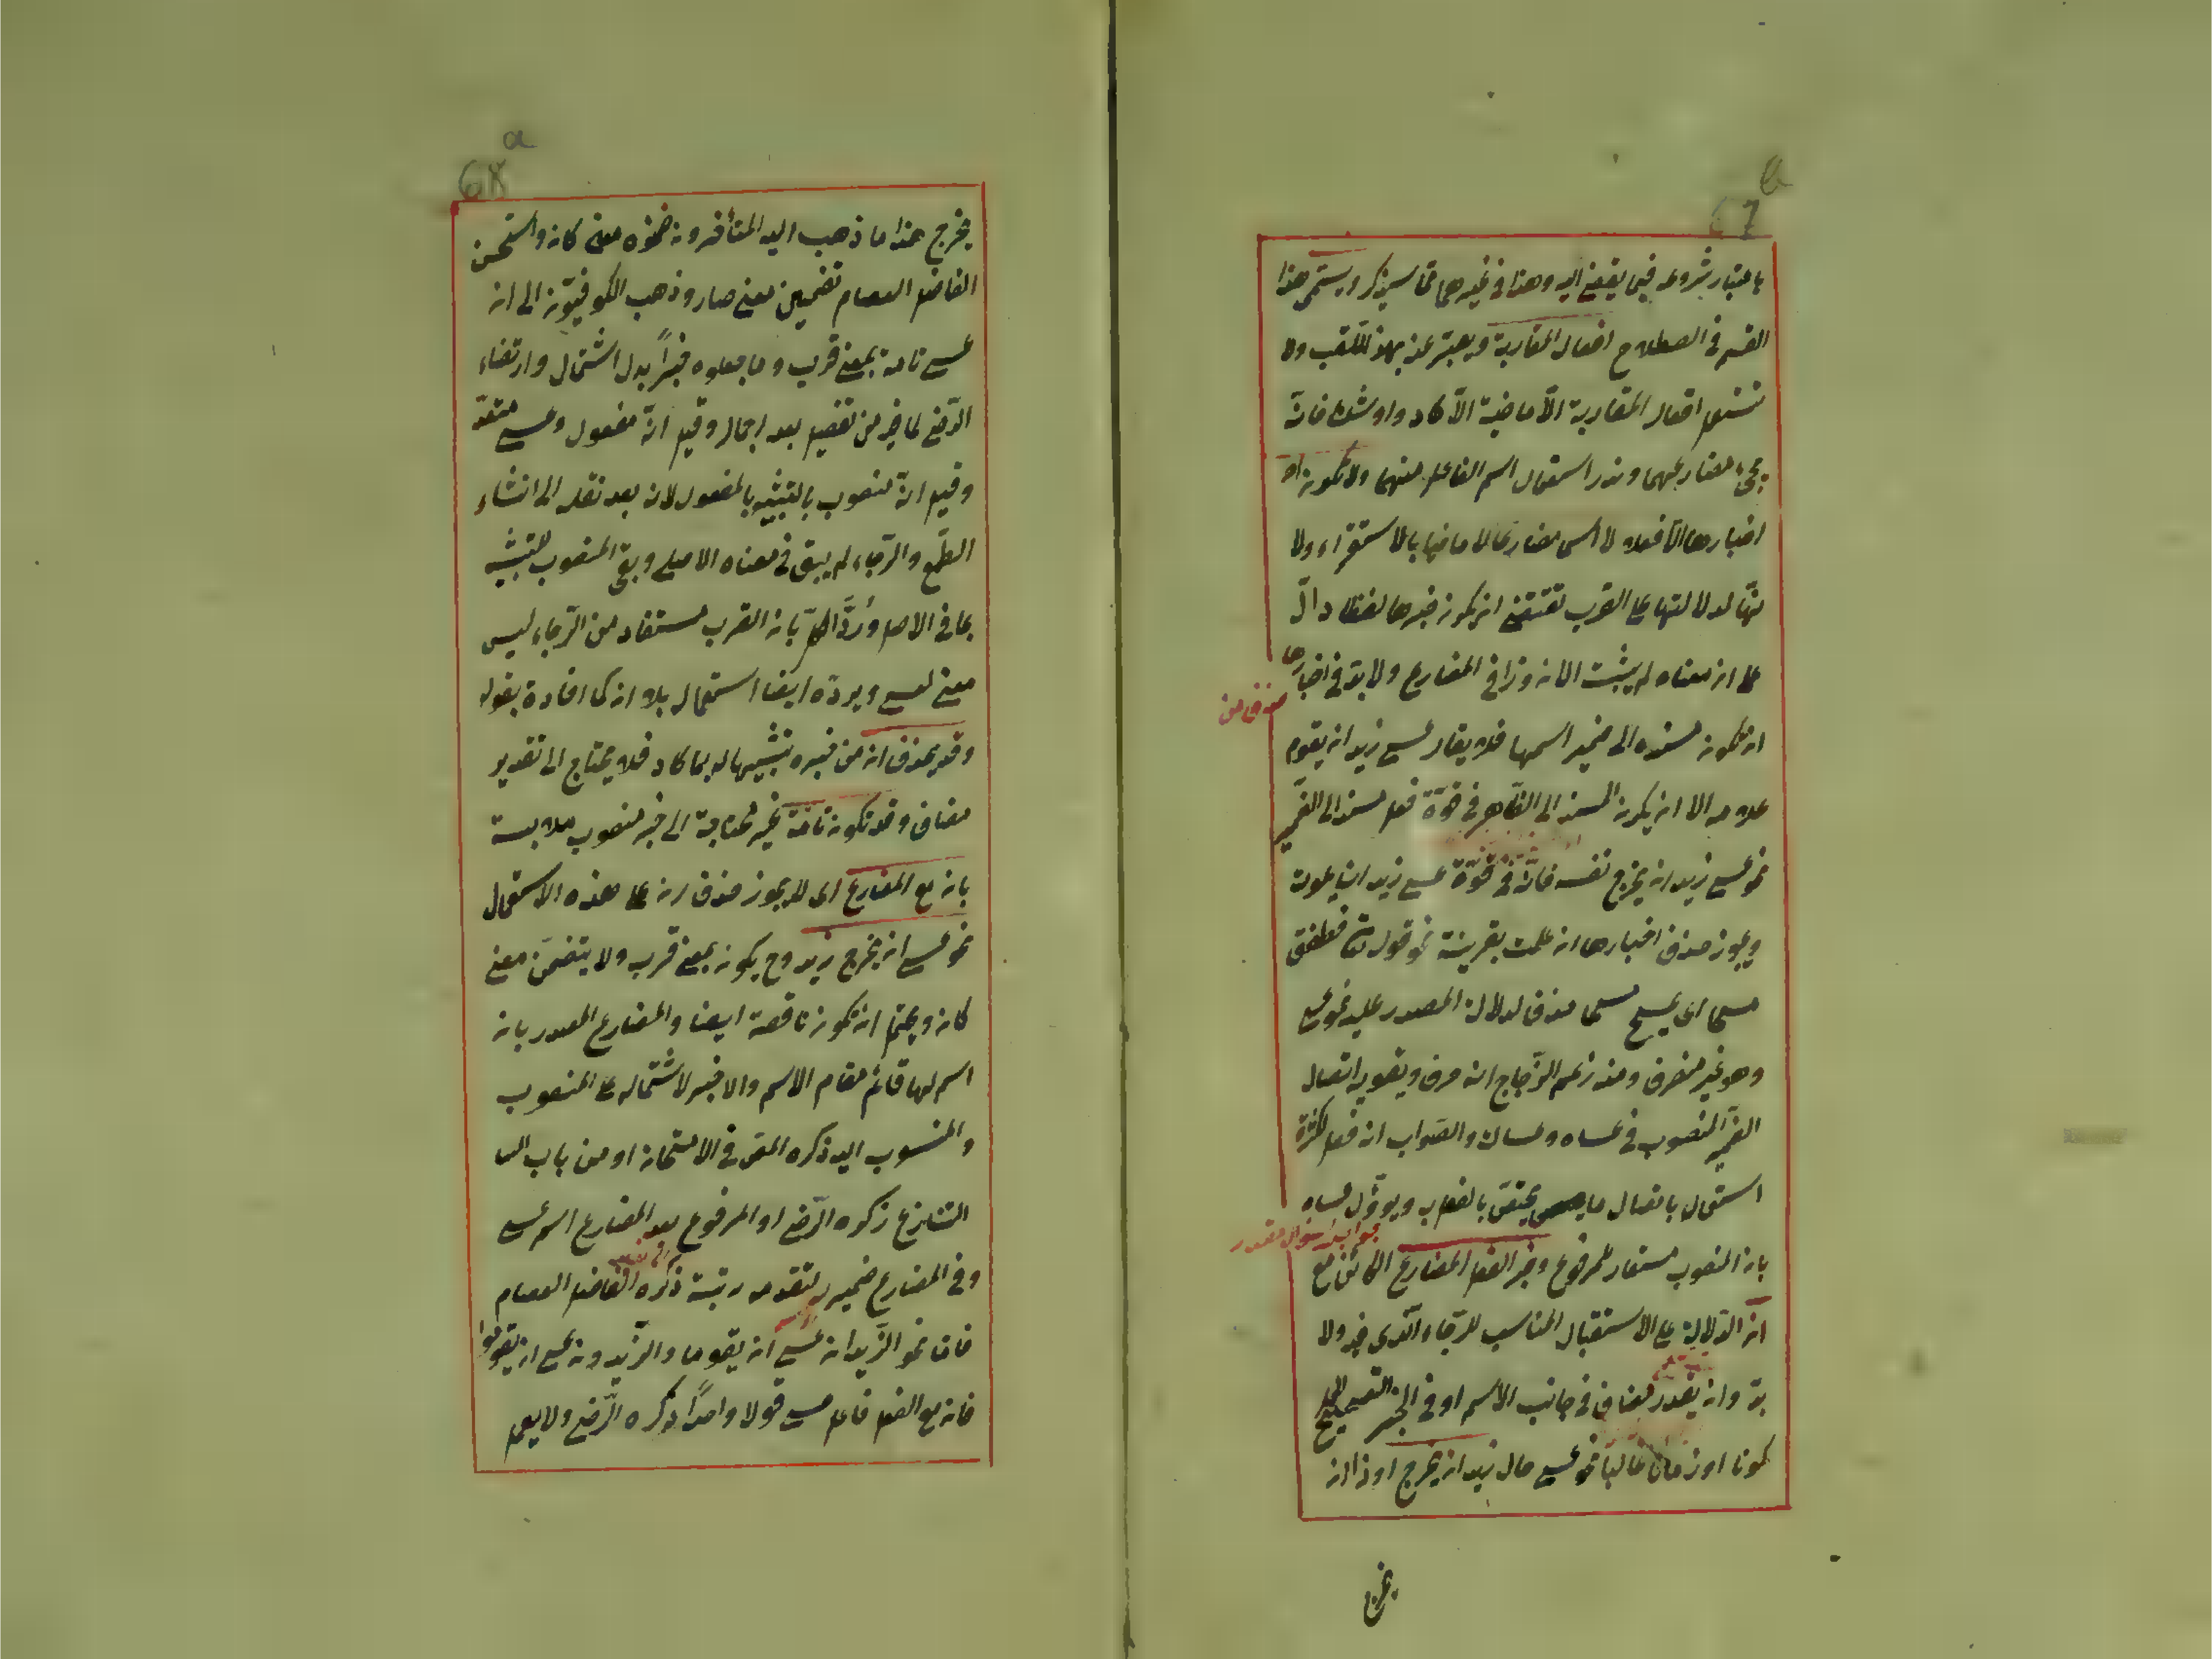 باعتبار شروعه فيما يفضى اليه وهذا فى غيرهما مما سيذكر ويسمى هذا
القسم فى اصطلاح افعال المقاربة ويعبر عنه بهذا اللقب ولا
تستعمل افعال المقاربة الا ماضية الا كاد واوشك فانه
يجئ مضارعهما وندر استعمال اسم الفاعل منهما ولا تكون
اخبارها الا فعلا مضارعا لا ماضيا بالاستقراء ولا
لدلالتها على القرب تقتضى ان يكون خبرها لفظا دال
على ان معناه لم يثبت الآن وذا فى المضارع ولا بد فى اخبارها
حذف من
ان تكون مسنده الى ضمير اسمها فلا يقال عسى زيد ان يقوم
غلامه الا ان يكون المسند الى الظاهر فى قوة فعل مسند الى الضمير
نحو عسى زيد ان يخرج نفسه فانه فى قوة عسى زيد ان يموت
ويجوز حذف اخبارها ان علمت بقرينة نحو قوله تعالى فطفق
مسحا اى يمسح مسحا حذف لدلالة المصدر عليه نحو عسى
وهو غير متصرف ومنه زعم الزجاج انه حرف ويقويه اتصال
الضمير المنصوب فى عساه وعساك والصواب انه فعل لكثرة
استعماله باتصال ما يختص بالفعل ويوؤل عساه
جواب سؤال مقدر
بان المنصوب مستعار للمرفوع وخبر الفعل المضارع الكائن مع
ان الدلالة على الاستقبال المناسب للرجاء الذى فيه ولا
بد وان يقدر مضاف فى جانب الاسم او فى الخبر
كونا او زمانا غالبا نحو عسى حال زيد ان يخرج او ذا ان
يخرج
يخرج هذا ما ذهب اليه المتأخرون ضمنوه معنى كان واستحسن
الفاضل العصام تضمين معنى صار وذهب الكوفيون الى ان
عسى تامة بمعنى قرب وما جعلوه خبرا بدل اشتمال وارتضاه
الرضى لما فيه من تفصيل بعد اجمال وقيل انه مفعول وعسى متعد
وقيل انه منصوب بالتشبيه بالمفعول لان بعد نقله الى انشاء
الطمع والرجاء لم يبق فى معناه الاصلى وبقى المنصوب للتشبيه
بما فى الاصل ورد الكل بان القرب مستفاد من الرجاء ليس
معنى لعسى ويرده ايضا استعماله بلا ان كما افاده بقوله
وقد يحذف ان من خبره تشبيها له بما كاد فلا يحتاج الى تقدير
مضاف وقد تكون تامة غير محتاجة الى خبر منصوب ملابسة
بان مع المضارع اى لا يجوز حذف ان على هذه الاستعمال
نحو عسى ان يخرج زيد وح يكون بمعنى قرب ولا يتضمن معنى
كان ويحتمل ان تكون ناقصة ايضا والمضارع المصدر بان
اسم لها قائم مقام الاسم والخبر لاشتماله على المنصوب
والمنسوب اليه ذكره المص فى الامتحان او من باب
التنازع ذكره الرضى او المرفوع بعد المضارع اسم عسى
وفى المضارع ضمير له لتقدمه رتبة ذكره الفاضل العصام
فاما نحو الزيدان عسى ان يقوما والزيدون عسى ان يقوموا
فان مع الفعل فاعل عسى قولا واحدا ذكره الرضى ولا يعمل